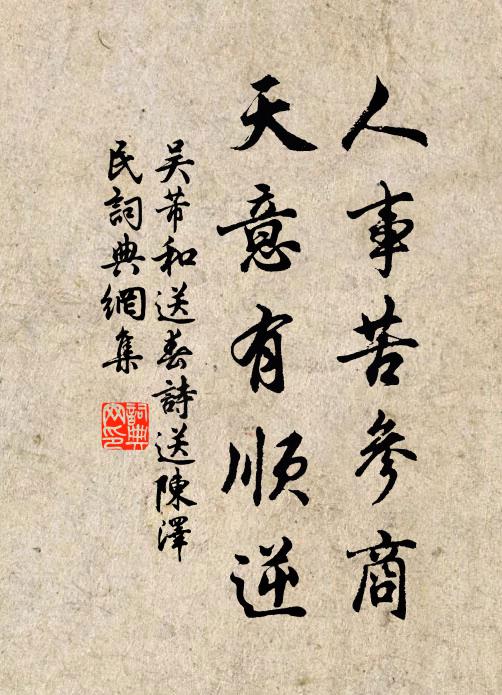 人事苦參商
天意有順逆
吴芾和送春詩送陳澤
民詞典網集
詞典网印